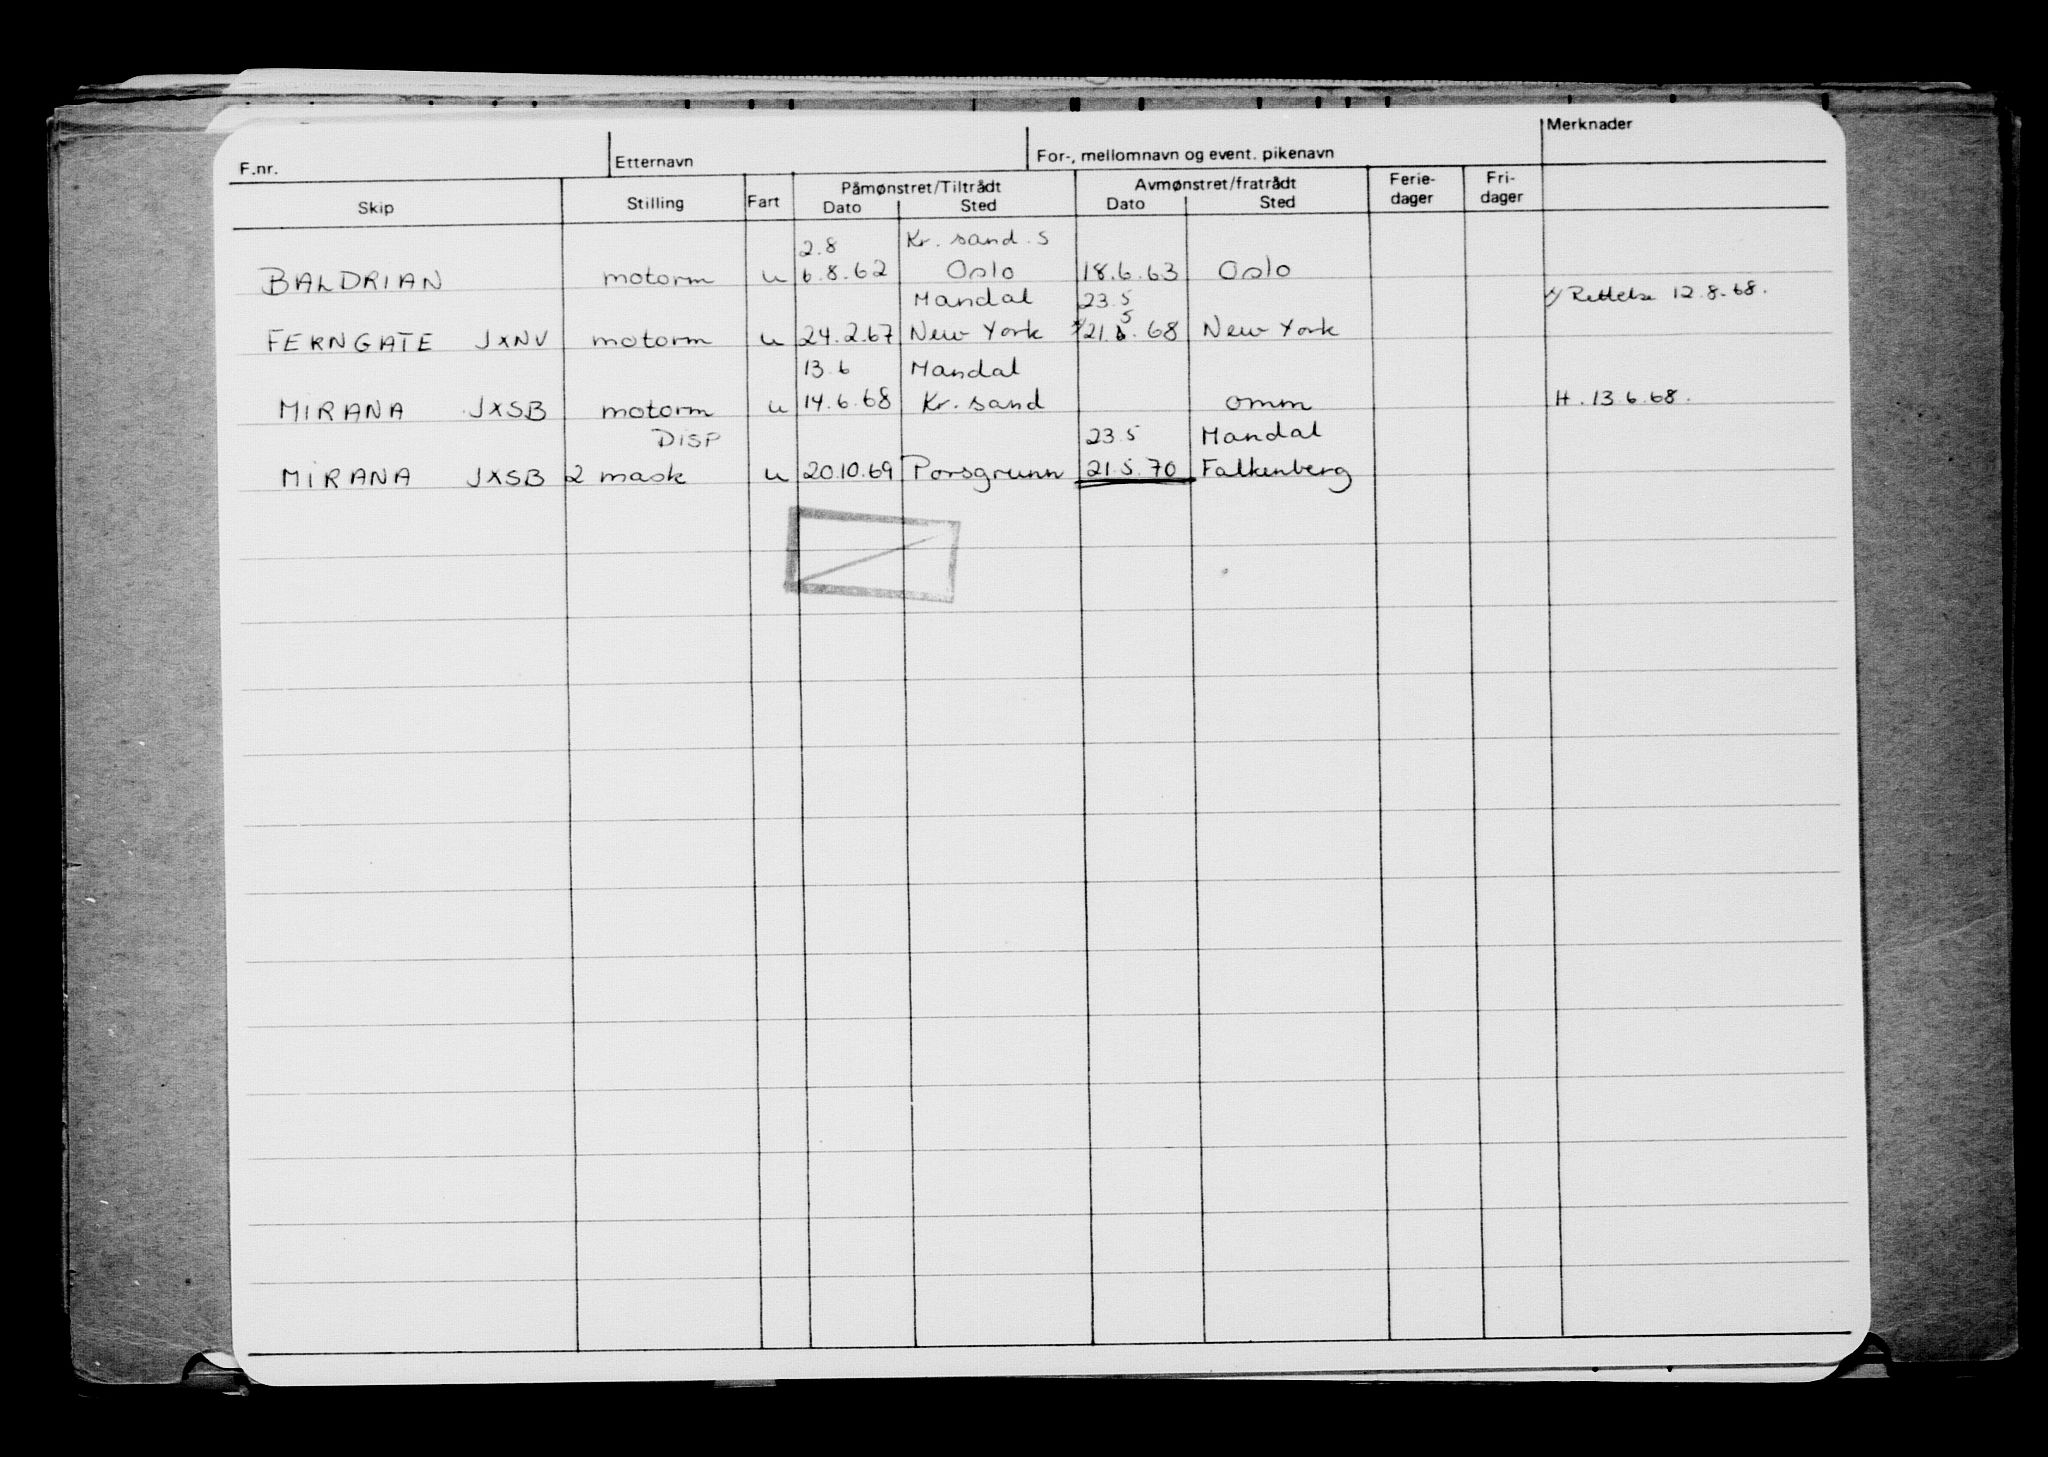 F.nr. Etternavn For-, mellomnavn og event. pikenavn Merknader
Skip Stilling Fart Påmønstret/Tiltrådt Dato Sted Avmønstret/fratrådt Dato Sted Ferie-dager Fri-dager
2.8 Kr. sand. S
BALDRIAN motorm u 6.8.62 Oslo 18.6.63 Oslo
Mandal 23.5 x/ Rettelse 12.8.68.
FERNGATE JXNV motorm u 24.2.67 New York x/21.5.68 New York
13.6 Mandal
MIRANA JXSB motorm u 14.6.68 Kr. sand omm H. 13.6.68.
DISP 23.5 Mandal
MIRANA JXSB 2 mask u 20.10.69 Porsgrunn 21.5.70 Falkenberg